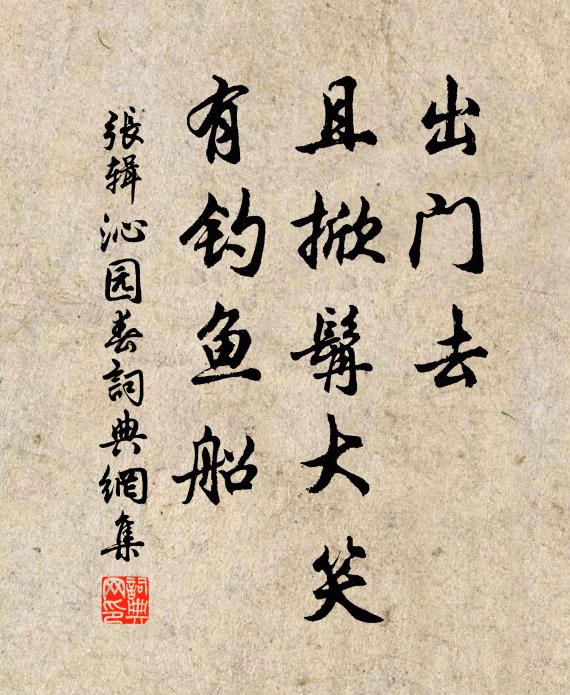 出门去
且掀髯大笑
有钓鱼船
張辑沁园春詞典網集
詞典网印